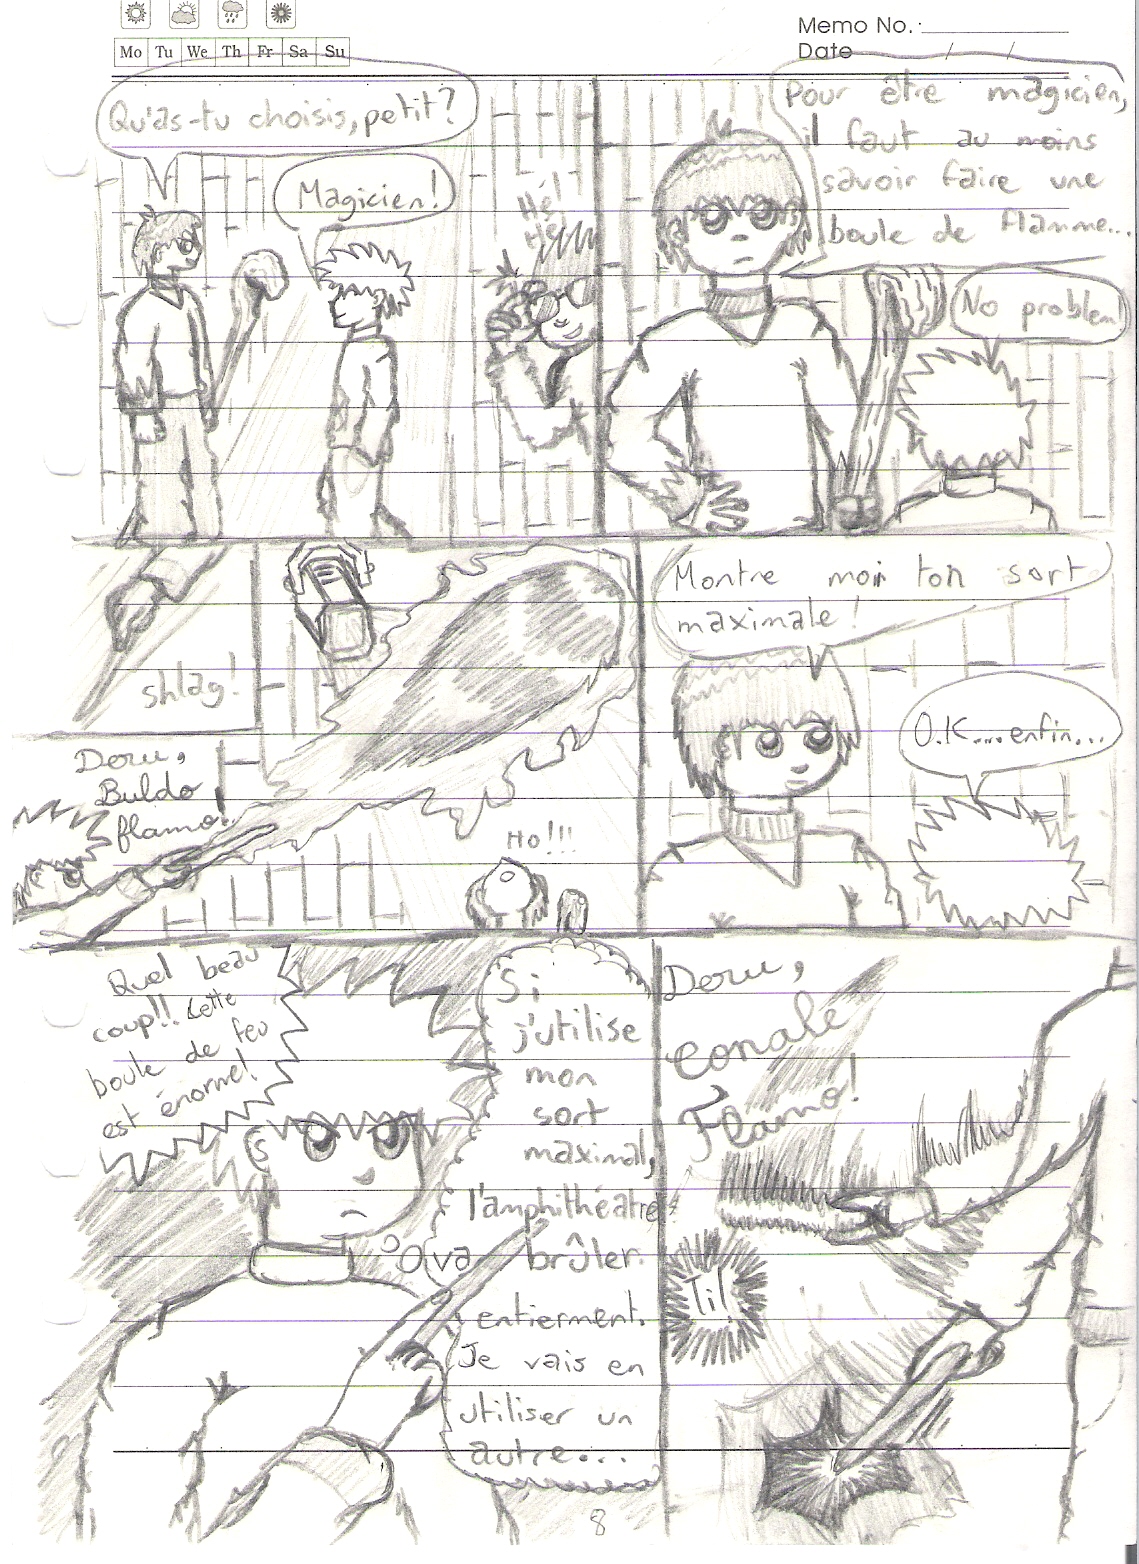 Memo No.:
Mo Tu We Th Fr Sa Su
Date / /
Qu'as-tu choisis, petit?
Magicien!
Hé!
Hé!
Pour être magicien,
il faut au moins
savoir faire une
boule de flamme...
No problem!
shlag!
Deru,
Buldo
flamo!
Ho!!!
Montre moi ton sort
maximale!
O.K....enfin...
Quel beau
coup!! Cette
boule de feu
est énorme!
Si
j'utilise
mon
sort
maximal,
l'amphithéatre
va brûler
entierment.
Je vais en
utiliser un
autre...
Deru,
Conale
Flamo!
Til!
8